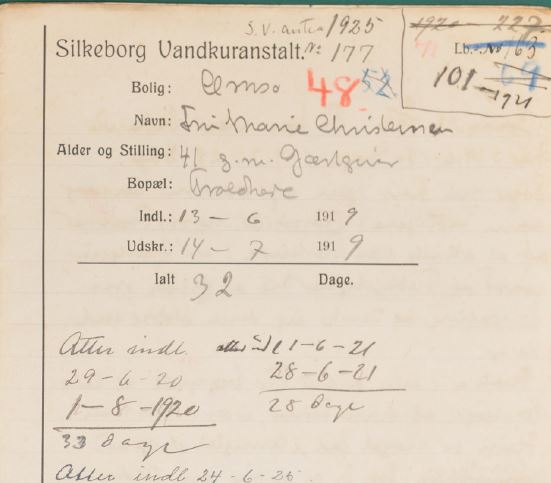 S.V. antra 1925
1920 - 227
Silkeborg Vandkuranstalt. № 177
71 Lb.-№ 165
69
101 - 1921
Bolig:
48 52
Navn: Fru Marie Christensen
Alder og Stilling: 41 g.m. Gæstgiver
Bopæl:
Indl.: 13 - 6 1919
Udskr.: 14 - 7 1919
Ialt 32 Dage.
Atter indl. 11-6-21
29-6-20 28-6-21
1-8-1920 28 Dage
33 Dage
Atter indl 24-6-25.